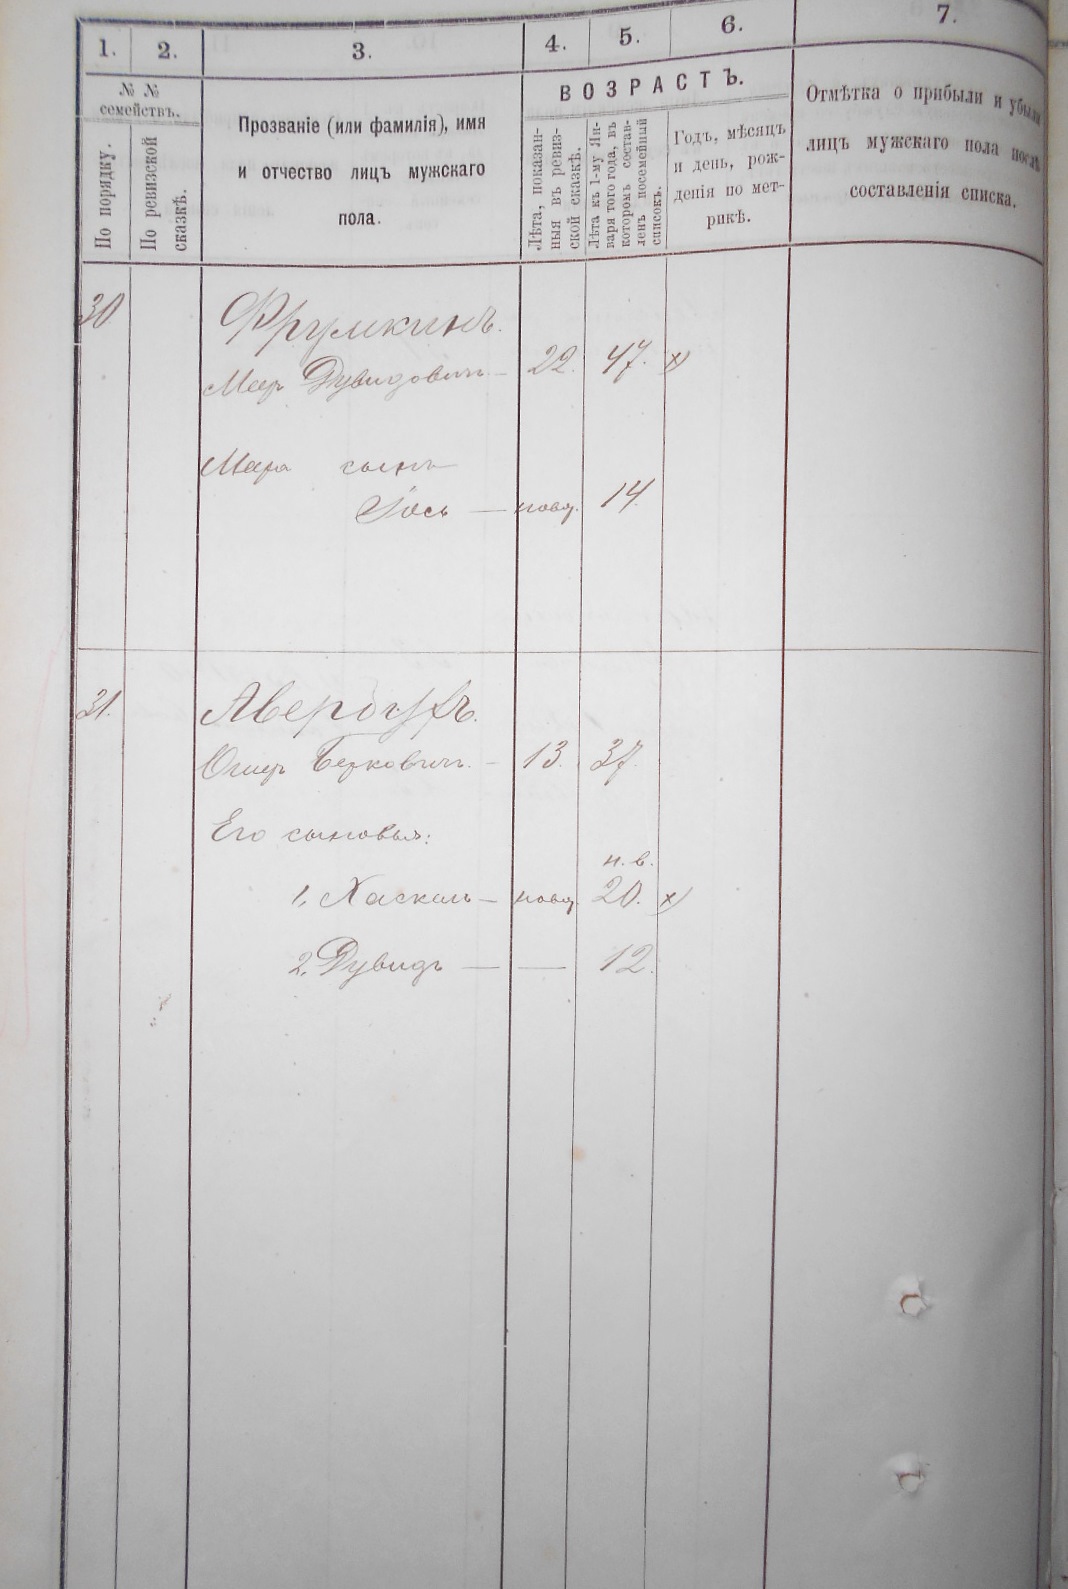 1. 2. 3. 4. 5. 6. 7.
№ № семействъ.
По порядку.
По ревизской сказкѣ.
Прозваніе (или фамилія), имя
и отчество лицъ мужскаго
пола.
ВОЗРАСТЪ.
Лѣта, показан-
ныя въ ревиз-
ской сказкѣ.
Лѣта къ 1-му Ян-
варя того года, въ
которомъ состав-
ленъ посемейный
списокъ.
Годъ, мѣсяцъ
и день, рож-
денія по мет-
рикѣ.
Отмѣтка о прибыли и убыли
лицъ мужскаго пола послѣ
составленія списка.
30 Фрумкинъ.
Меер Дувидовичъ — 22. 47. х)
Меера сынъ
Іось — новр. 14.
31. Авербухъ.
Ошер Берковичъ. — 13. 37.
Его сыновья:
н. в.
1, Хаскель — новр. 20. х)
2, Дувидъ — — 12.